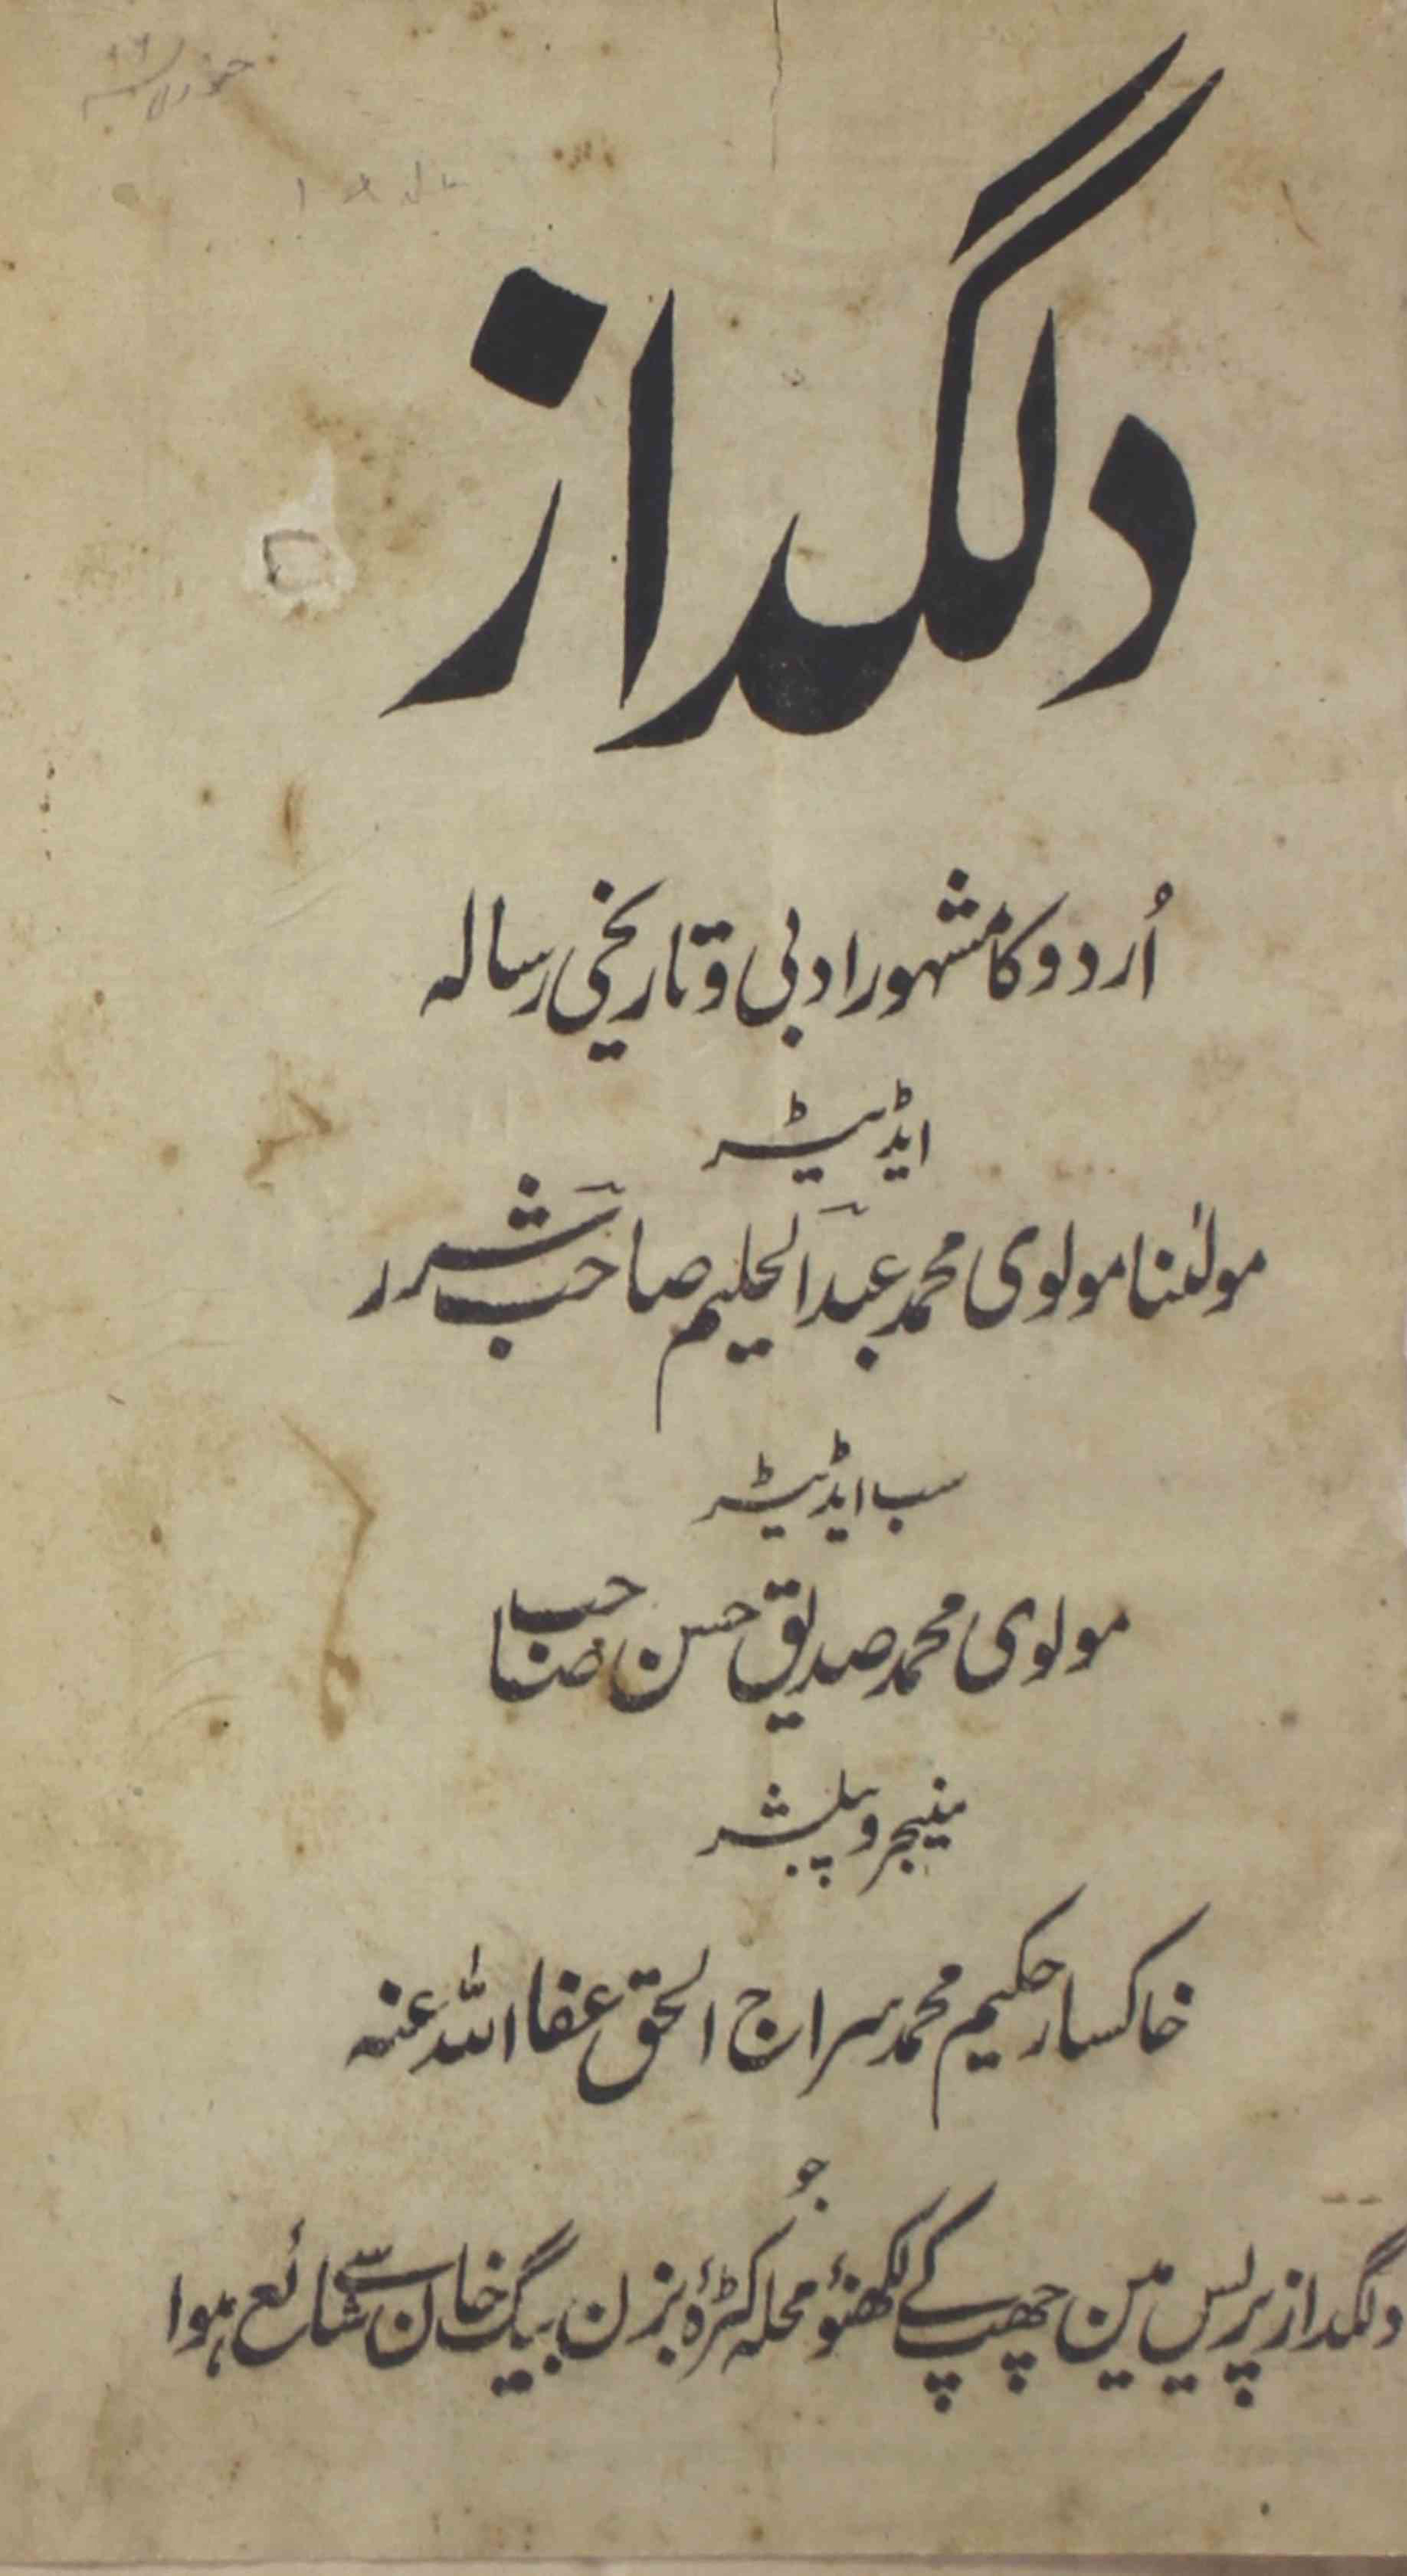 دلگداز
اُردو کا مشہور ادبی و تاریخی رسالہ
ایڈیٹر
مولٰنا مولوی محمد عبدالحلیم صاحب شرر
سب ایڈیٹر
مولوی محمد صدیق حسن صاحب
منیجر و پبلشر
خاکسار حکیم محمد سراج الحق عفا اللہ عنہ
جو
دلگداز پریس مین چھپ کے لکھنؤ محلہ کٹرۂ بزن بیگ خان سے شائع ہوا